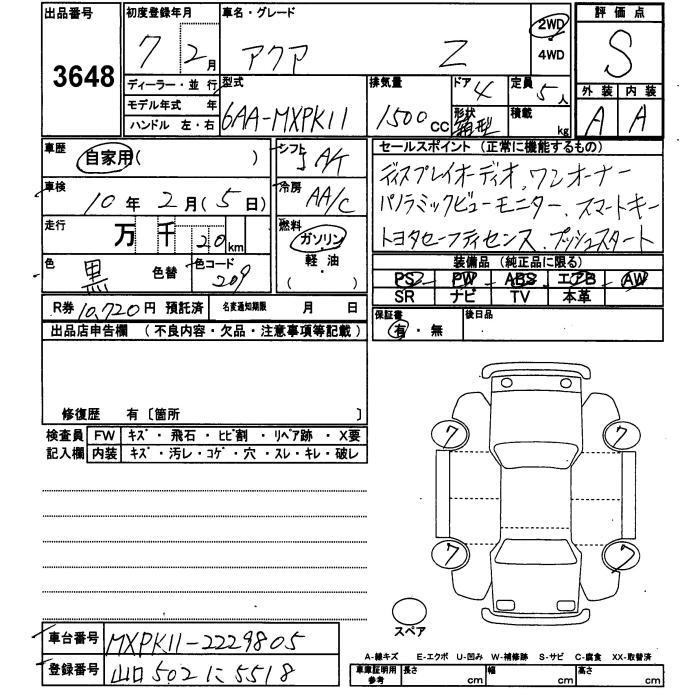 出品番号
3648
初度登録年月
7 2月
車名・グレード
アクア Z
2WD
4WD
評価点
S
外装 内装
A A
ディーラー・並行
モデル年式 年
ハンドル 左・右
型式
6AA-MXPK11
排気量
1500cc
ドア
4
形状
箱型
定員
5人
積載
kg
車歴
自家用( )
シフト
車検
10年 2月(5日)
冷房
AA/C
走行
万 千 20 km
燃料
ガソリン
軽・油
( )
色
黒
色替
色コード
209
R券 10,720円 預託済
名変通知期限 月 日
セールスポイント (正常に機能するもの)
ディスプレイオーディオ、ワンオーナー
パノラミックビューモニター、スマートキー
トヨタセーフティセンス、プッシュスタート
装備品 (純正品に限る)
PS PW ABS エアB AW
SR ナビ TV 本革
保証書
有・無
後日品
出品店申告欄 (不良内容・欠品・注意事項等記載)
修復歴 有〔箇所 〕
検査員
記入欄
FW キズ・飛石・ヒビ割・リペア跡・X要
内装 キズ・汚レ・コゲ・穴・スレ・キレ・破レ
7 7
7 7
スペア
車台番号
MXPK11-2229805
登録番号
山口 502 に 5518
A-線キズ E-エクボ U-凹み W-補修跡 S-サビ C-腐食 XX-取替済
車庫証明用
参考
長さ cm 幅 cm 高さ cm